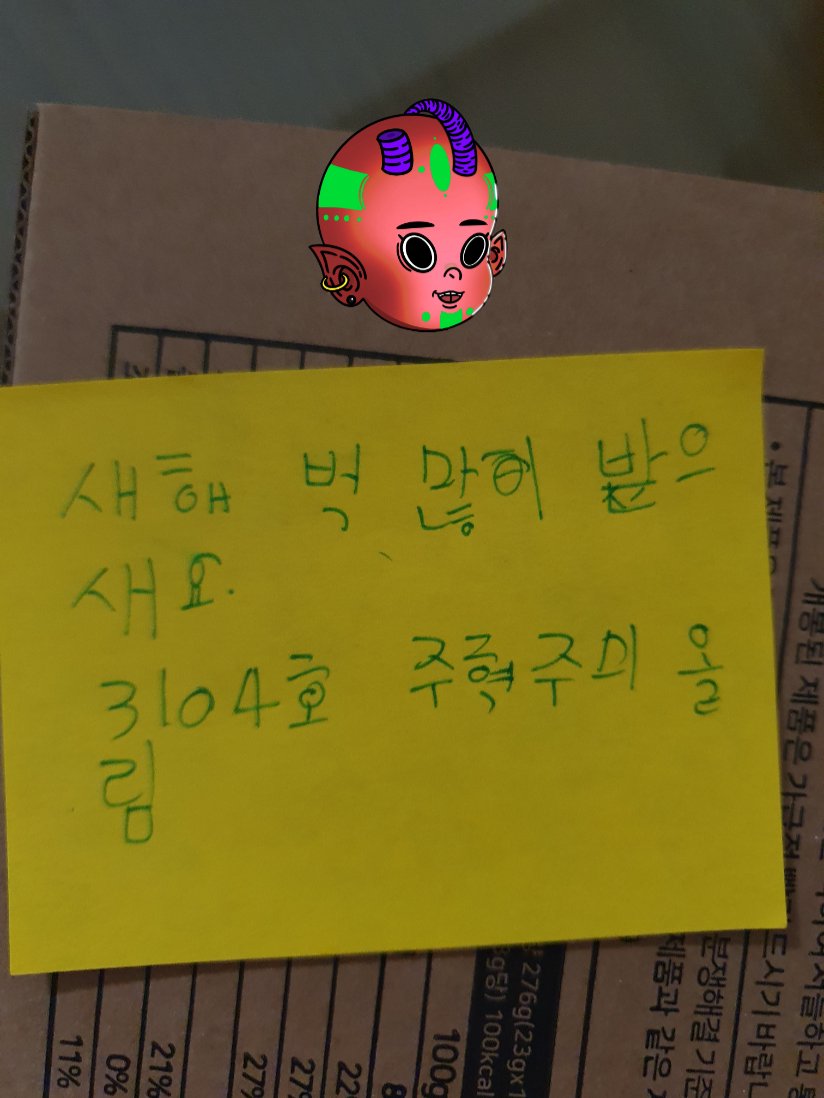 새해 벅 많이 받으
새요.
3104호 올
림
본 제품은
개봉된 제품은 가급적 빨리 드시기 바랍니
분쟁해결기준
제품과 같은
276g(23gx1
100kcal
100g
22
27
27%
21%
0%
11%